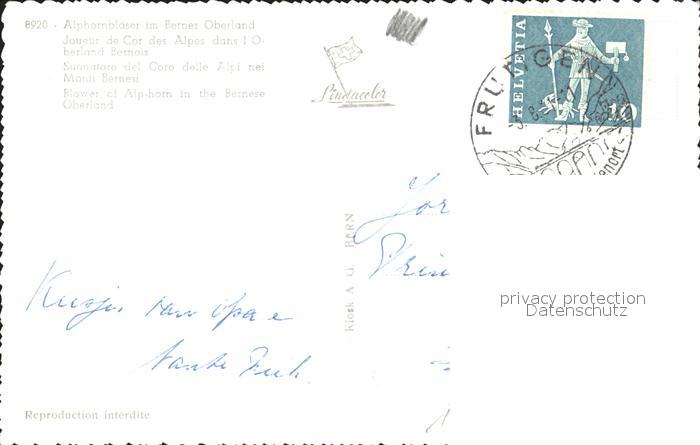 8920 - Alphornbläser im Berner Oberland
Joueur de Cor des Alpes dans l'O-
berland Bernois
Suonatore del Coro delle Alpi nei
Monti Bernesi
Blower of Alp-horn in the Bernese
Oberland
Lindacolor
HELVETIA
10
FRUTIGEN
Kiosk A G. BERN
privacy protection
Datenschutz
Kusjes van opa e
tante
Reproduction interdite